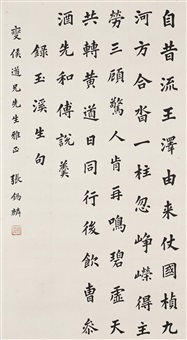 自昔流王澤由來仗國楨九
河方合沓一柱忽崢嶸得主
勞三顧驚人肯再鳴碧虛天
共轉黃道日同行後飲曹參
酒先和傅說羹
錄玉溪生句
燮侯道兄先生雅正 張錫麟